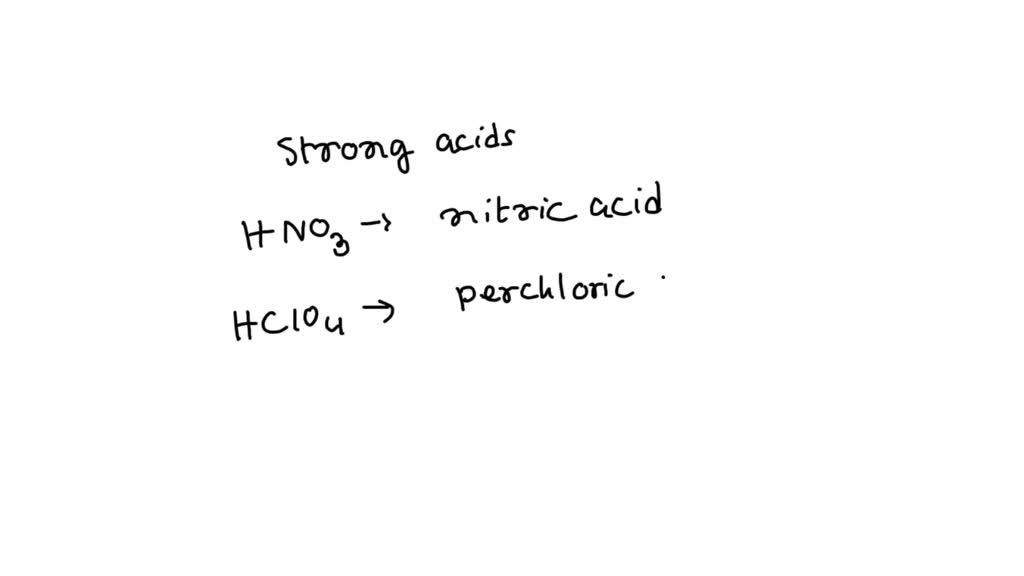 Strong acids
HNO₃ → nitric acid
HClO₄ → perchloric